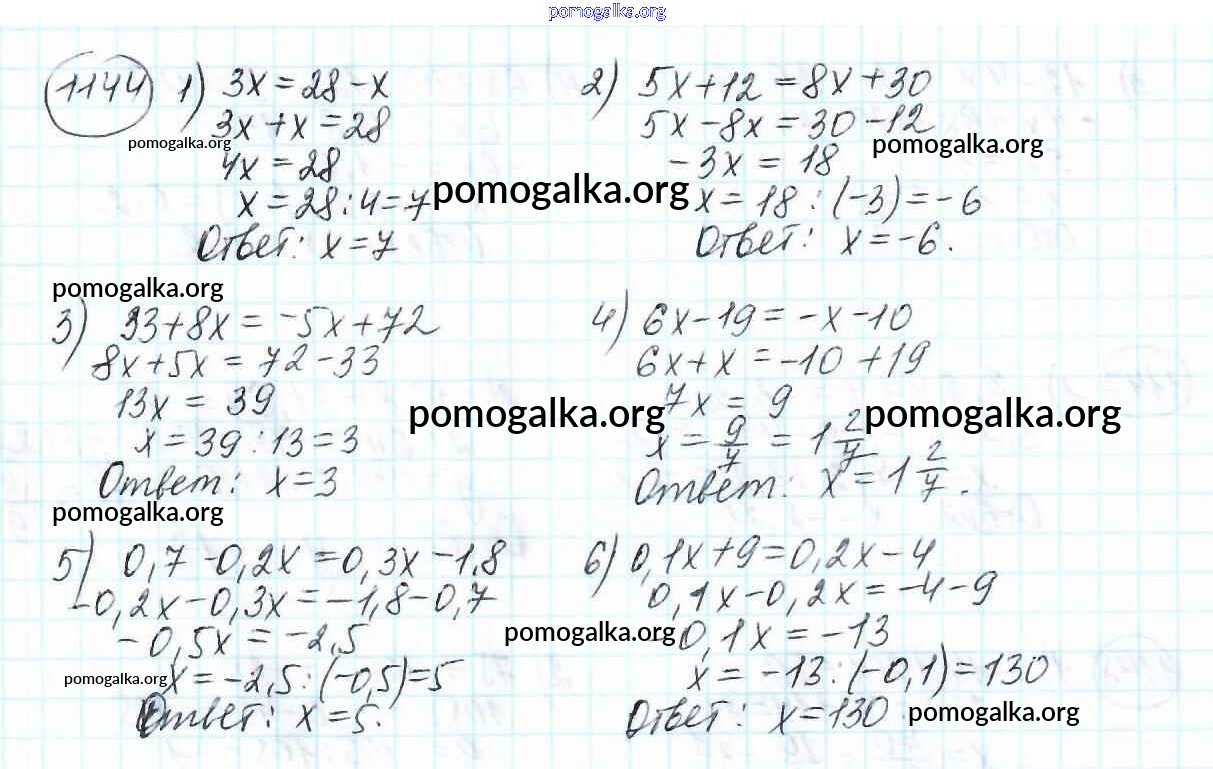 pomogalka.org
1144 1) 3x = 28 - x
3x + x = 28
pomogalka.org
4x = 28
x = 28 : 4 = 7
pomogalka.org
Ответ: x = 7
2) 5x + 12 = 8x + 30
5x - 8x = 30 - 12
pomogalka.org
-3x = 18
x = 18 : (-3) = -6
Ответ: x = -6.
pomogalka.org
3) 33 + 8x = -5x + 72
8x + 5x = 72 - 33
13x = 39
pomogalka.org
x = 39 : 13 = 3
Ответ: x = 3
4) 6x - 19 = -x - 10
6x + x = -10 + 19
7x = 9
pomogalka.org
x = 9/7 = 1 2/7
Ответ: x = 1 2/7.
pomogalka.org
5) 0,7 - 0,2x = 0,3x - 1,8
-0,2x - 0,3x = -1,8 - 0,7
-0,5x = -2,5
pomogalka.org
pomogalka.org
x = -2,5 : (-0,5) = 5
Ответ: x = 5.
6) 0,1x + 9 = 0,2x - 4
0,1x - 0,2x = -4 - 9
-0,1x = -13
x = -13 : (-0,1) = 130
Ответ: x = 130
pomogalka.org